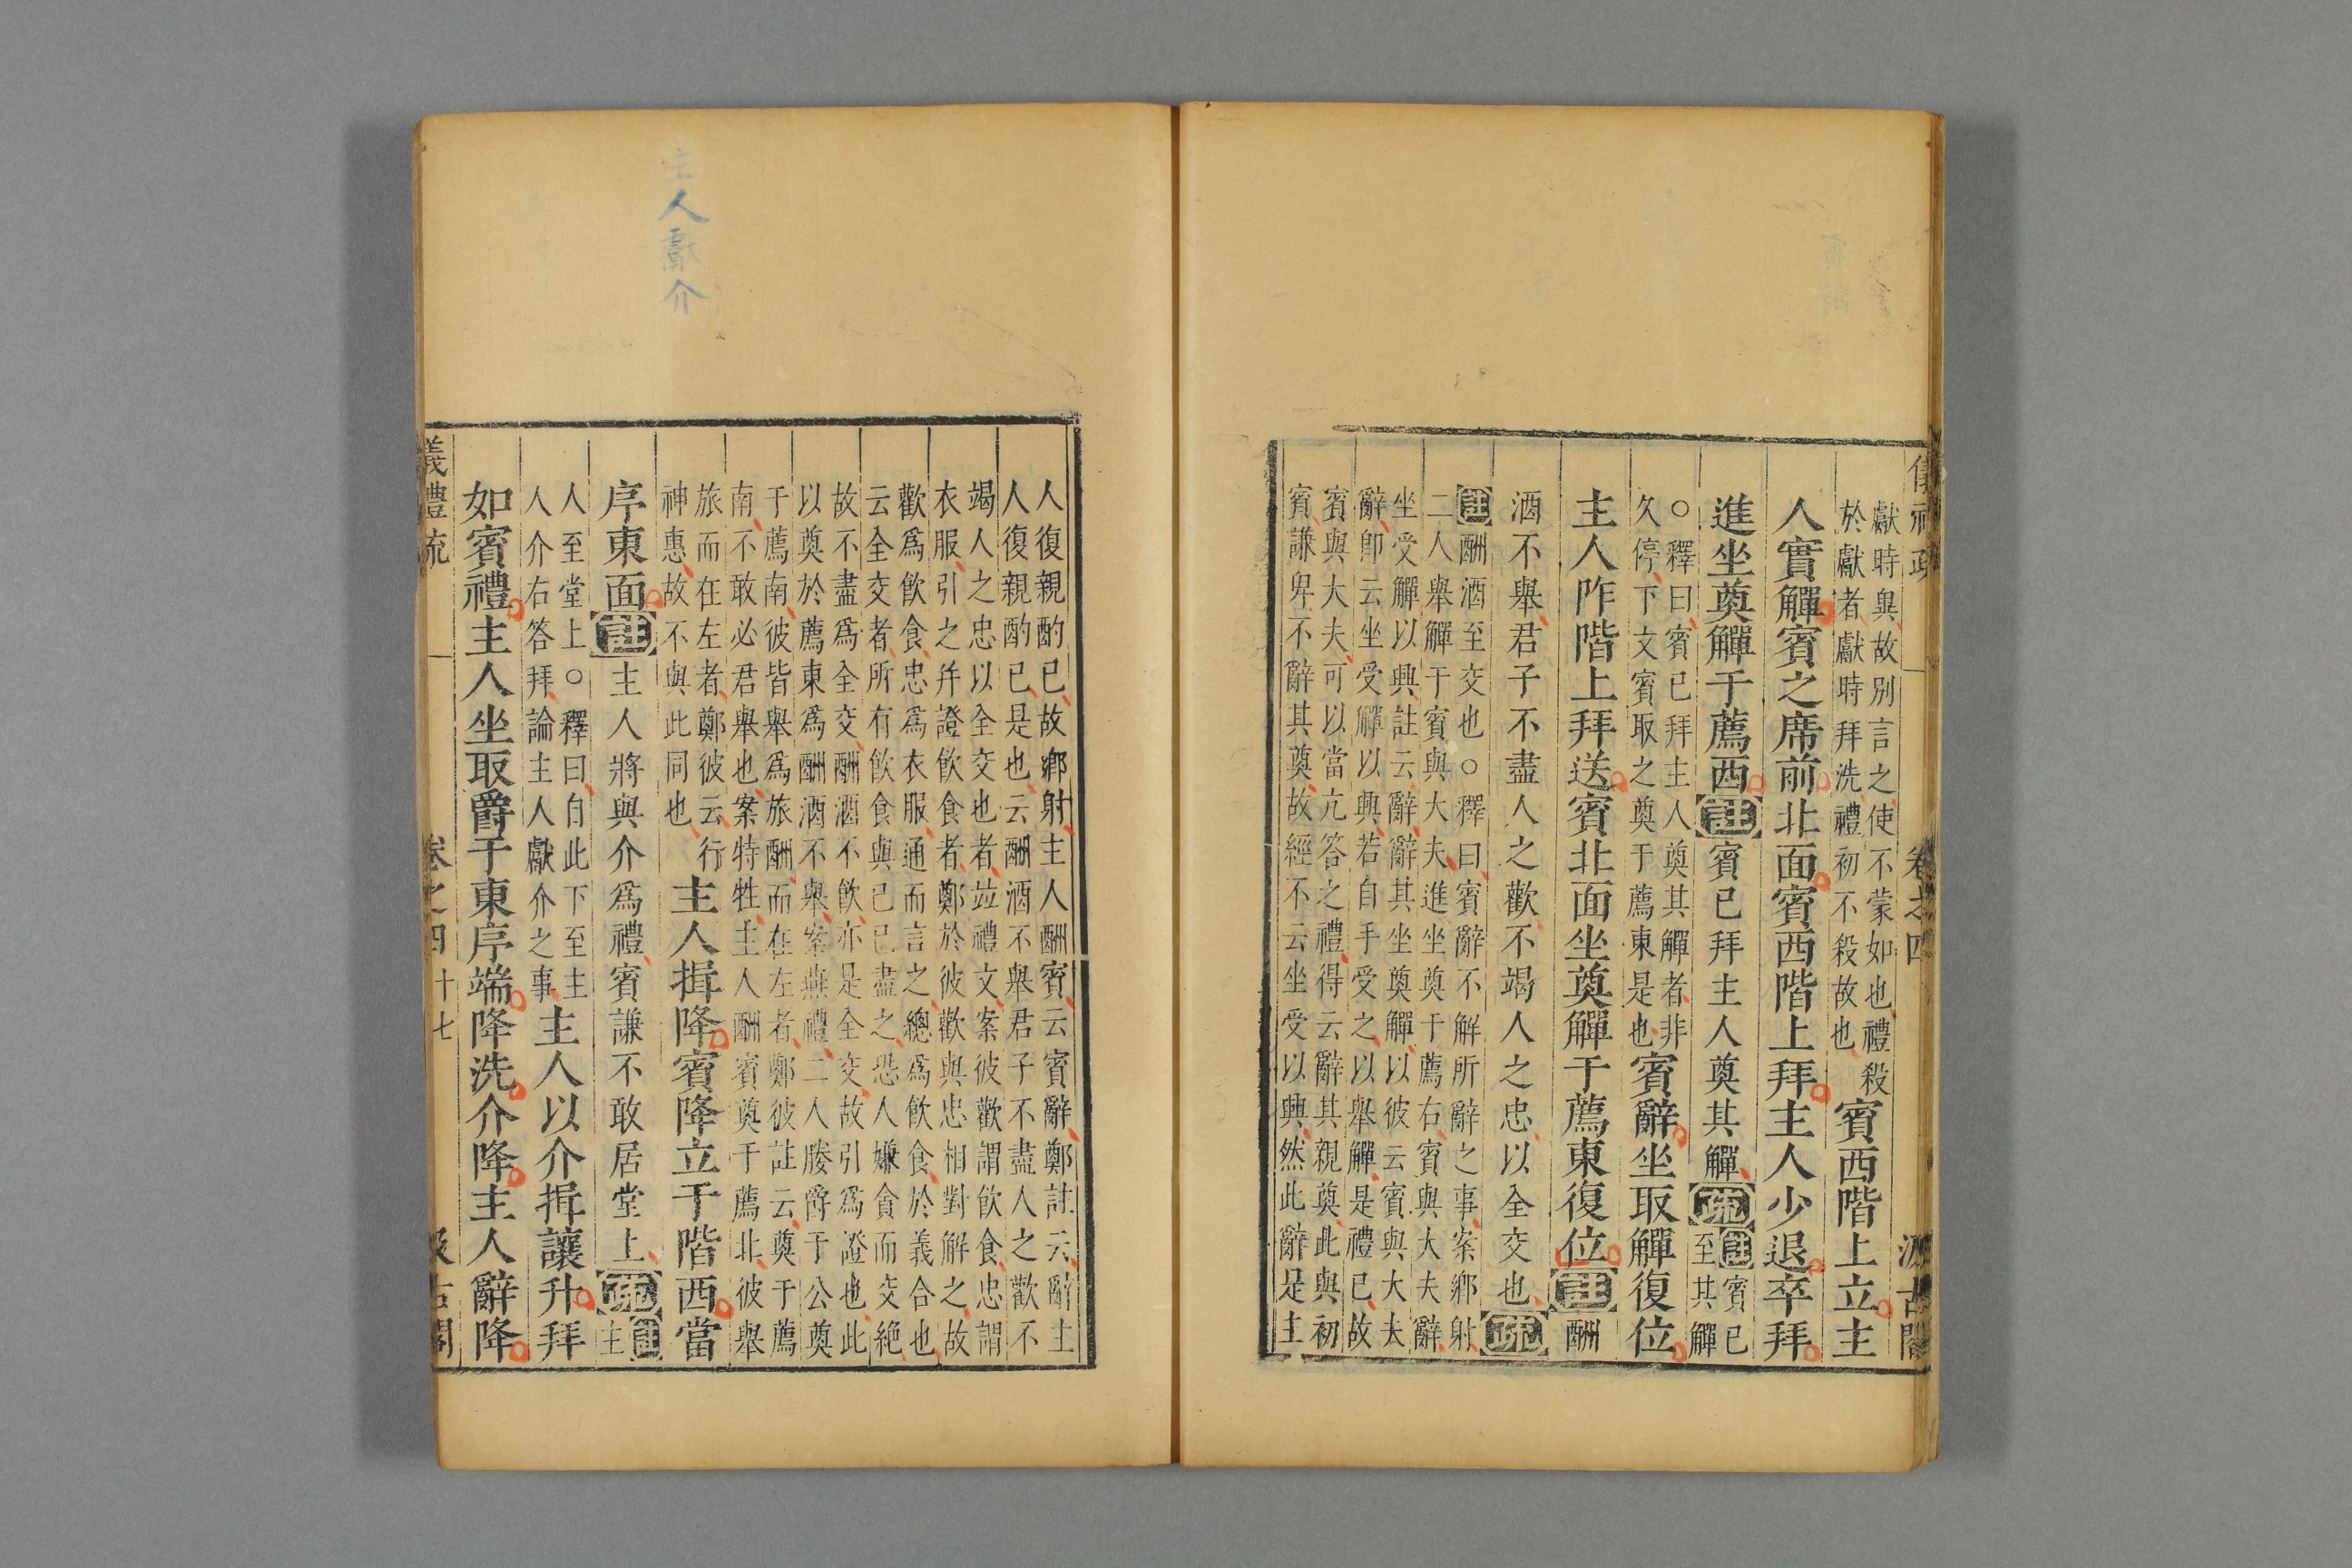 儀禮疏 卷之四 汲古閣
獻時與故別言之使不蒙如也禮殺
於獻者獻時拜洗禮初不殺故也
賓西階上立主
人實觶賓之席前北面賓西階上拜主人少退卒拜
進坐奠觶于薦西註賓已拜主人奠其觶疏註賓已
至其觶
○釋曰賓已拜主人奠其觶者非
久停下文賓取之奠于薦東是也
賓辭坐取觶復位
主人阼階上拜送賓北面坐奠觶于薦東復位註酬
酒不舉君子不盡人之歡不竭人之忠以全交也疏
註酬酒至交也○釋曰賓辭不解所辭之事案鄉射
二人舉觶于賓與大夫進坐奠于薦右賓與大夫辭
坐受觶以興註云辭辭其坐奠觶以彼云賓與大夫
辭卽云坐受觶以興若自手受之以舉觶是禮已故
賓與大夫可以當亢答之禮得云辭其親奠此與初
賓謙卑不辭其奠故經不云坐受以興然此辭是主
主人獻介
人復親酌已故鄉射主人酬賓云賓辭鄭註云辭主
人復親酌已是也云酬酒不舉君子不盡人之歡不
竭人之忠以全交也者竝禮文案彼歡謂飲食忠謂
衣服引之并證飲食者鄭於彼歡與忠相對解之故
歡爲飲食忠爲衣服通而言之總爲飲食於義合也
云全交者所有飲食與已已盡之恐人嫌貪而交絶
故不盡爲全交酬酒不飲亦是全交故引爲證也此
以奠於薦東爲酬酒不舉案燕禮二人媵爵于公奠
于薦南彼皆舉爲旅酬而在左者鄭彼註云奠于薦
南不敢必君舉也案特牲主人酬賓奠于薦北彼舉
旅而在左者鄭彼云行
神惠故不與此同也
主人揖降賓降立于階西當
序東面註主人將與介爲禮賓謙不敢居堂上疏註
主
人至堂上○釋曰自此下至主
人介右答拜論主人獻介之事
主人以介揖讓升拜
如賓禮主人坐取爵于東序端降洗介降主人辭降
義禮疏 卷之四 十七 汲古閣